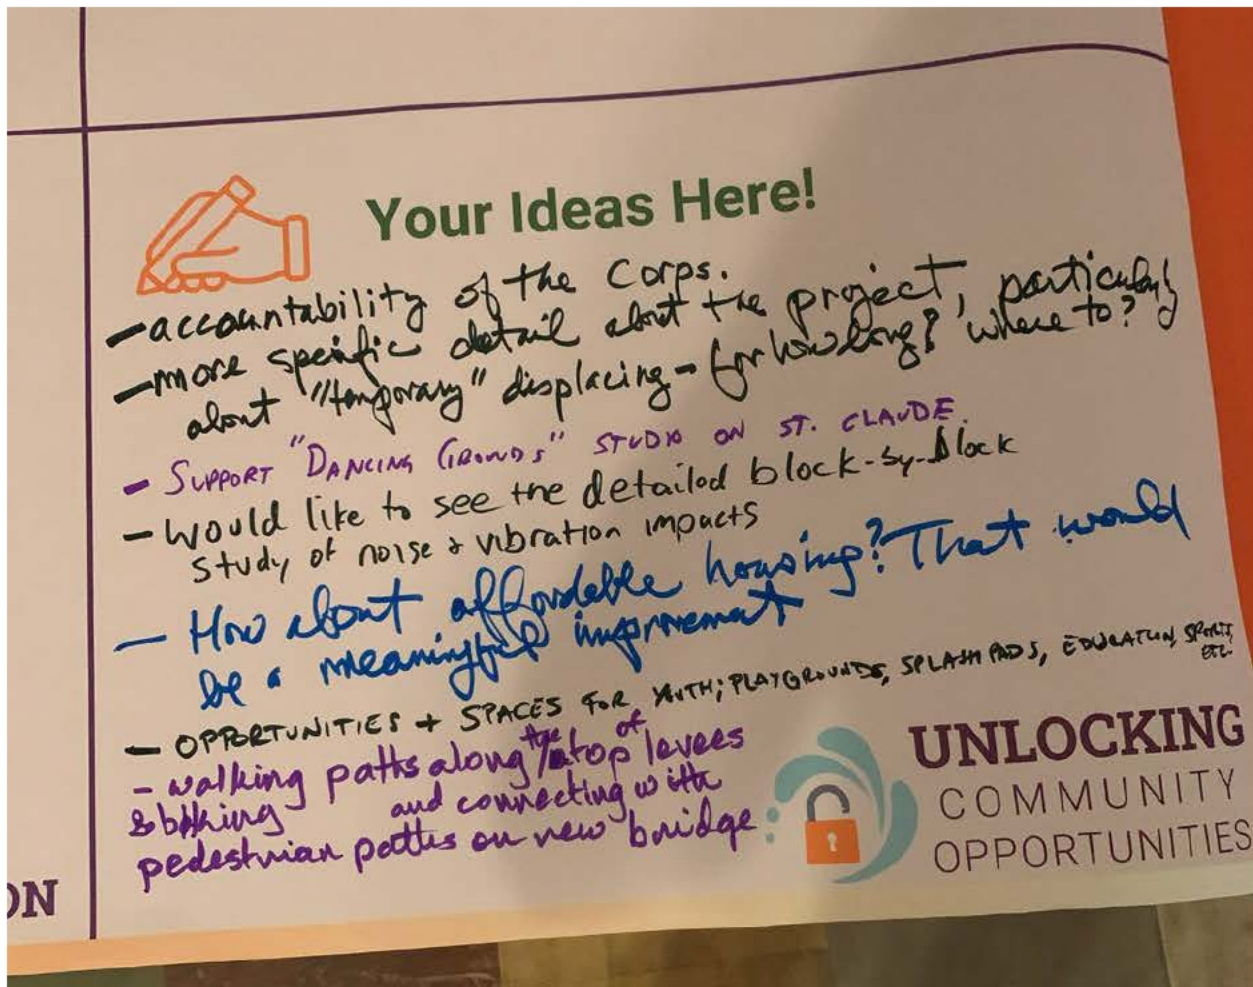 Your Ideas Here!
- accountability of the Corps.
- more specific detail about the project, particularly
about "temporary" displacing - for how long? where to?
- SUPPORT "DANCING GROUNDS" STUDIO ON ST. CLAUDE
- would like to see the detailed block-by-block
study of noise & vibration impacts
- How about affordable housing? That would
be a meaningful improvement
- OPPORTUNITIES + SPACES FOR YOUTH; PLAYGROUNDS, SPLASH PADS, EDUCATION, SPORTS,
ETC.
- walking paths along the / atop of levees
& biking and connecting with
pedestrian paths on new bridge
UNLOCKING
COMMUNITY
OPPORTUNITIES
ON